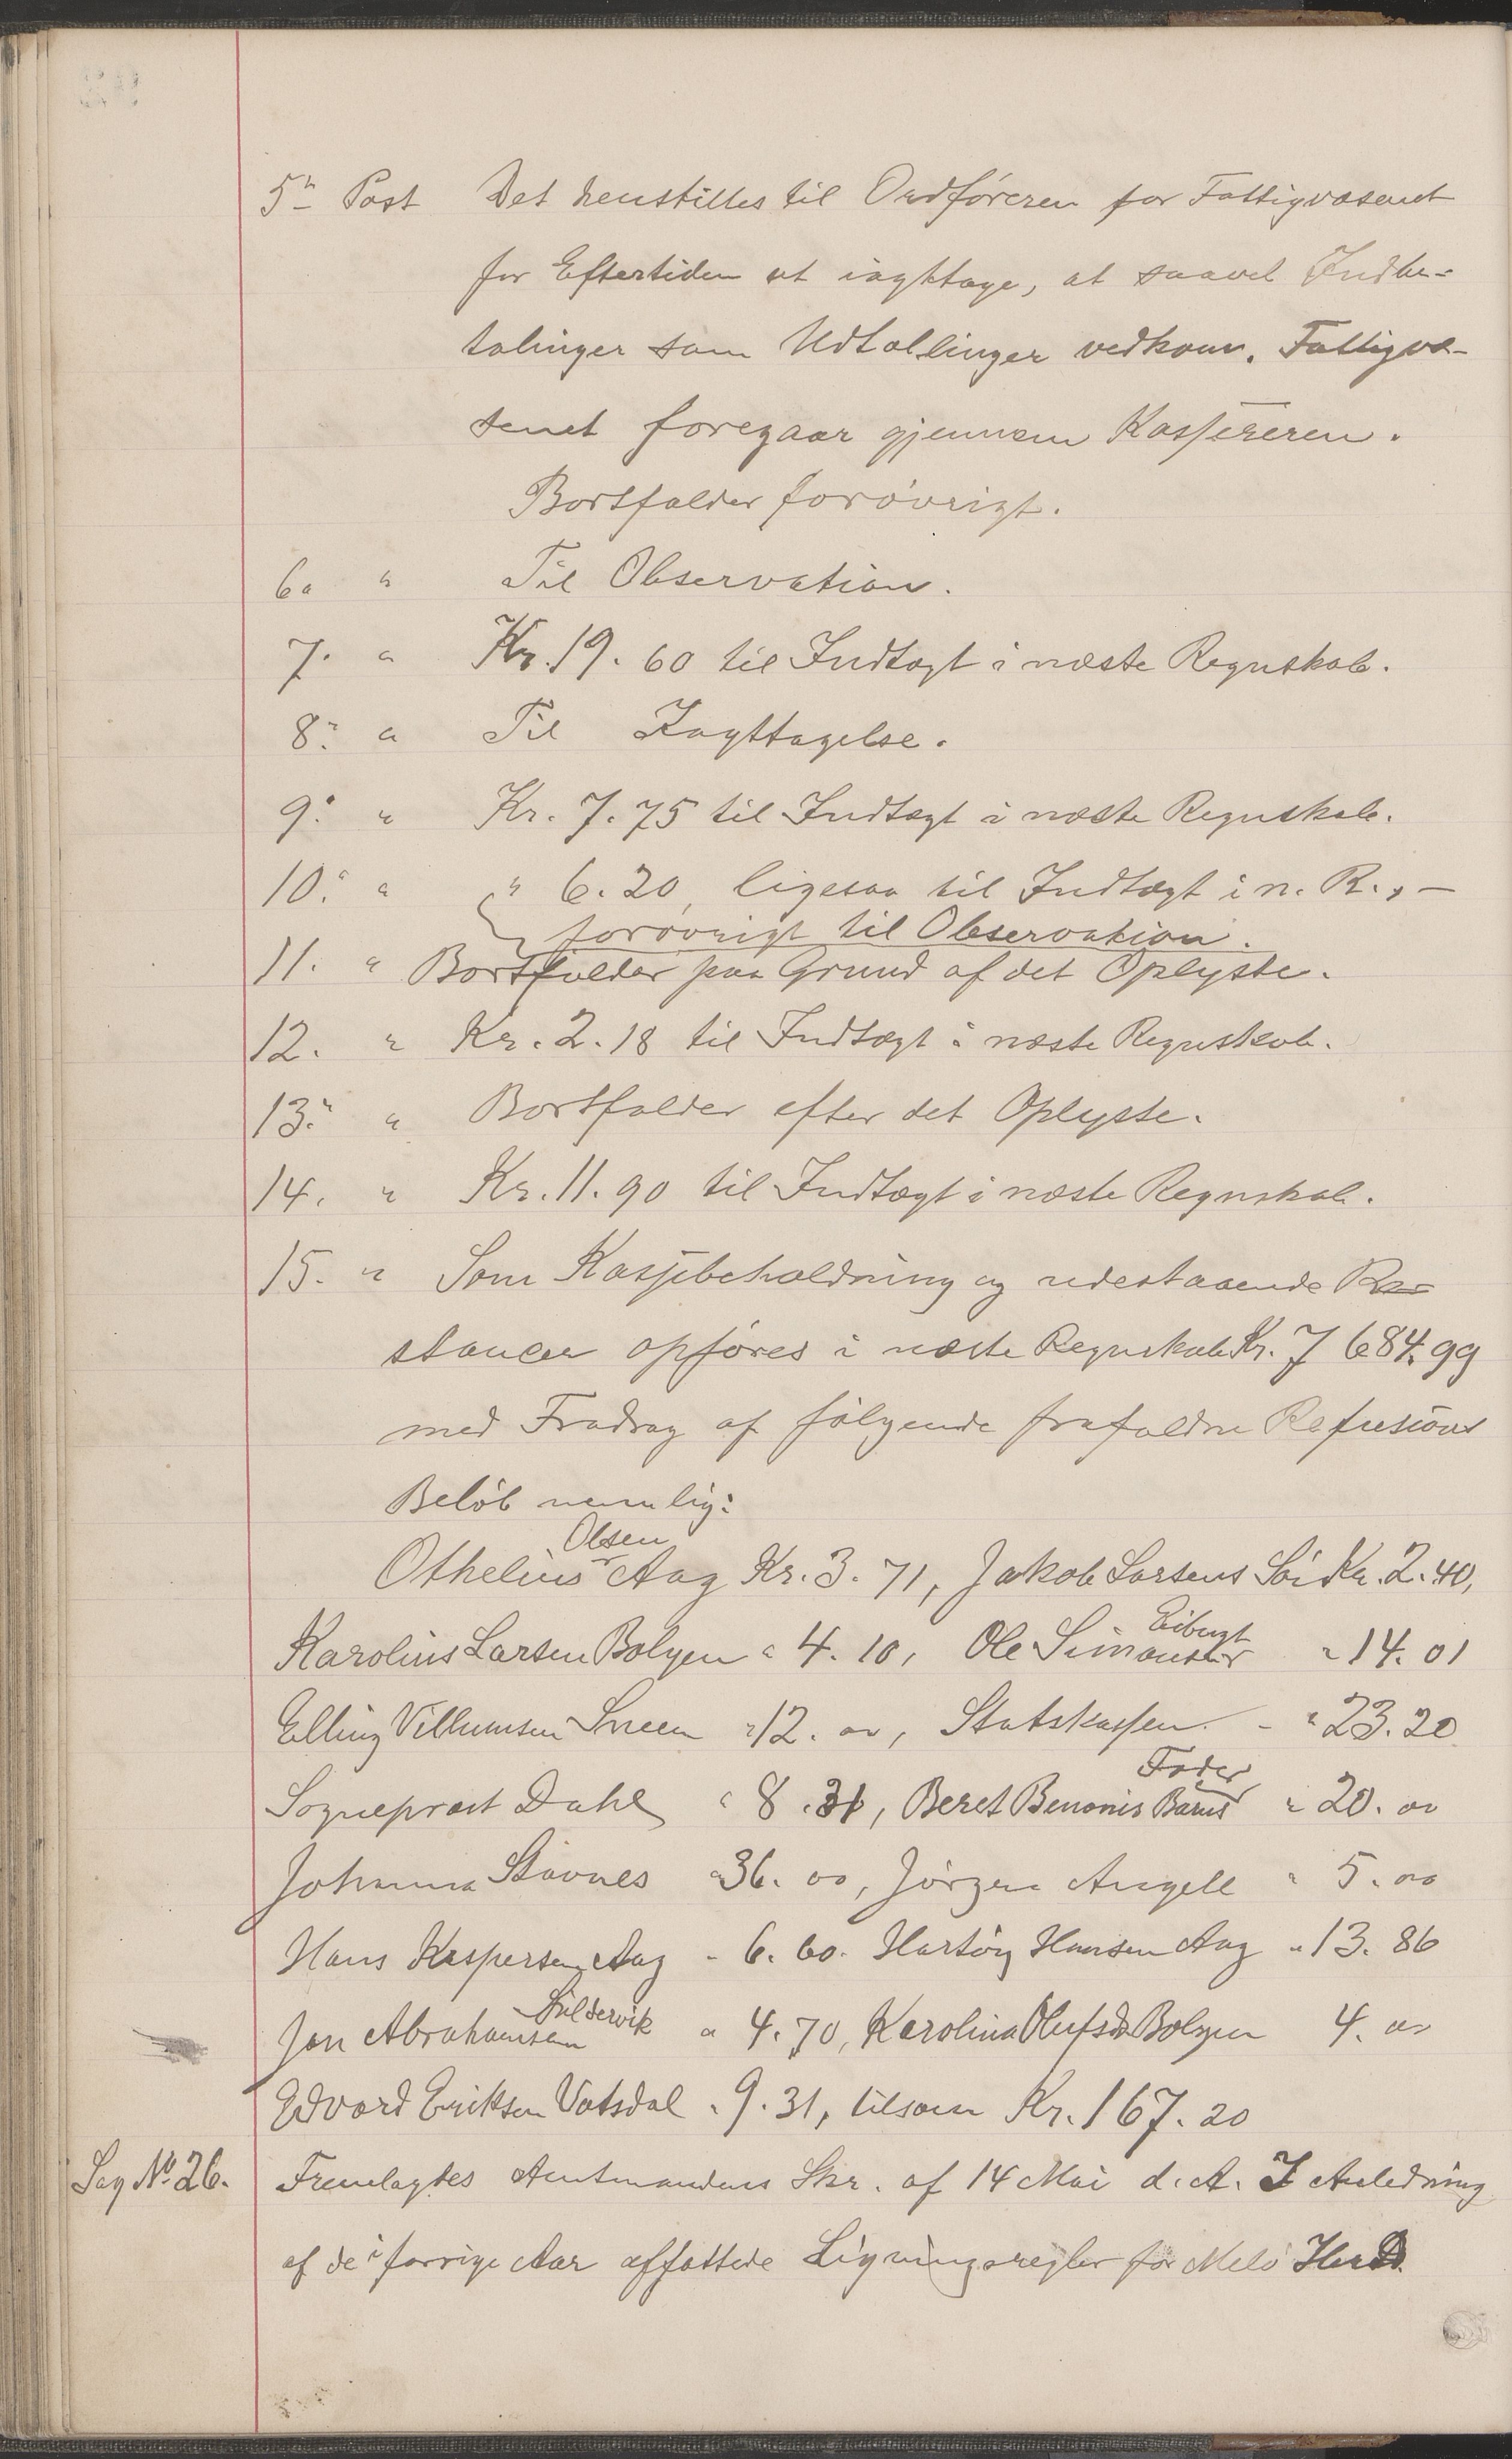 5" Post Det henstilles til Ordføreren for Fattigvæsenet
for Eftertiden at iagttage, at saavel Indbe-
talinger som Udtallinger vedkom. Fattigvæ-
senet foregaar gjennem Kassereren.
Bortfalder forøvrigt.
6" " Til Observation.
7. " Kr. 19.60 til Indtægt i næste Regnskab.
8." " Til Iagttagelse.
9." " Kr. 7.75 til Indtægt i næste Regnskab.
10." " " 6.20, ligesaa til Indtægt i n. R., –
forøvrigt til Observation.
11. " Bortfalder paa Grund af det Oplyste.
12. " Kr. 2.18 til Indtægt i næste Regnskab.
13." " Bortfalder efter det Oplyste.
14. " Kr. 11.90 til Indtægt i næste Regnskab.
15. " Som Kassebeholdning og udestaaende Re-
stancer opføres i næste Regnskab Kr. 7 684.99
med Fradrag af følgende frafaldne Refusions
Beløb nemlig:
Othelius Olsen Aag Kr. 3.71, Jakob Larsens Kr. 2.40,
Karolius Larsen Bolgen " 4.10, Ole Simonsen " 14.01
Elling Villumsen Sneen " 12.00, Statskassen – " 23.20
Sognepræst Dahl " 8.31, Beret Benonis Barns Fader " 20.00
Johanna Støvnes " 36.00, Jörgen Angell " 5.00
Hans Kaspersen Aag " 6.60. Hartvig Hansen Aag " 13.86
Jon Abrahamsen Sildervik " 4.70, Karolina Olufsd. Bolgen 4.00
Edvard Eriksen Vatsdal " 9.31, tilsam Kr. 167.20
Sag No. 26. Fremlagtes Amtmandens Skr. af 14 Mai d. A. I Anledning
af de i forrige Aar affattede Ligningsregler for Melø Herd.